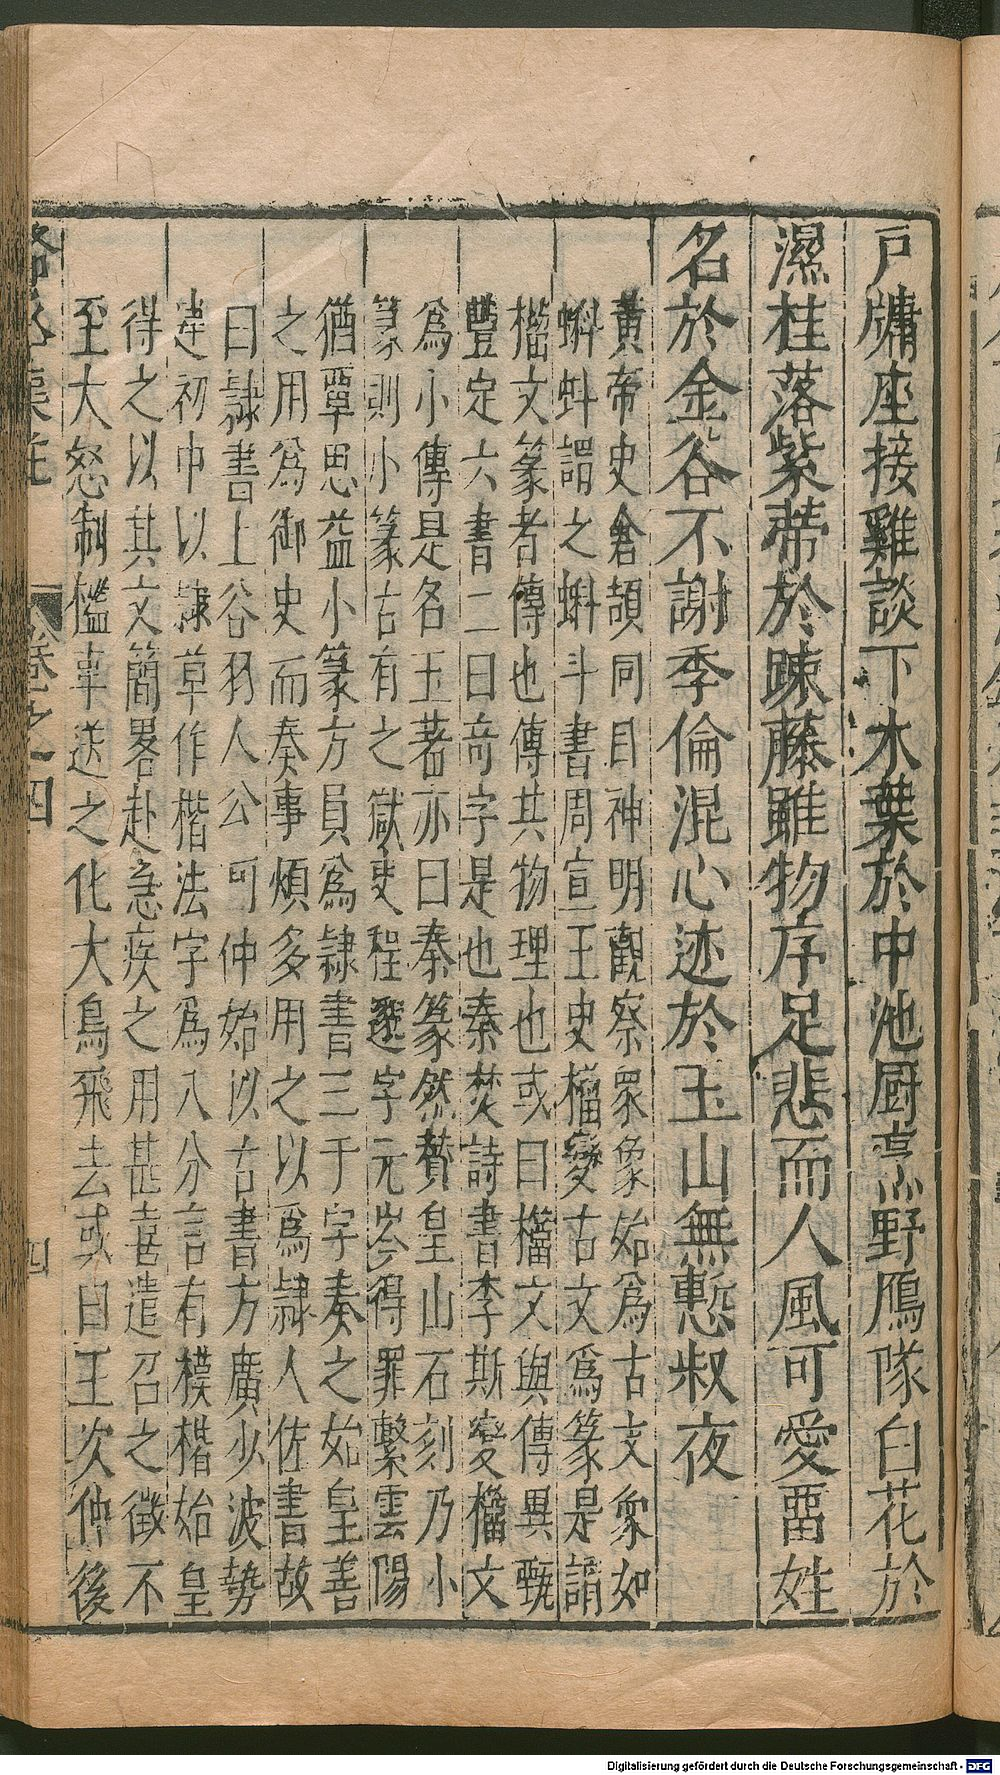 戸牗座接雞談下木葉於中池厨烹野鴈隊白花於
濕桂落紫蔕於踈藤雖物序足悲而人風可愛畱姓
名於金谷不謝季倫混心迹於玉山無慙叔夜
黃帝史倉頡同目神明觀察衆象始爲古文象如
蝌蚪謂之蝌斗書周宣王史籀變古文爲篆是謂
籀文篆者傳也傳其物理也或曰籀文與傳異甄
豐定六書二曰竒字是也秦焚詩書李斯變籀文
爲小傳是名玉著亦曰秦篆然贊皇山石刻乃小
篆則小篆古有之獄吏程邈字元岑得罪繫雲陽
猶覃思益小篆方員爲隷書三于字奏之始皇善
之用爲御史而奏事煩多用之以爲隷人佐書故
曰隷書上谷羽人公可仲始以古書方廣少波勢
建初中以隷草作楷法字爲八分言有模楷始皇
得之以其文簡畧赴急疾之用甚喜遣召之徵不
至大怒制檻車送之化大鳥飛去或曰王次仲後
卷之四
四
Digitalisierung gefördert durch die Deutsche Forschungsgemeinschaft - DFG